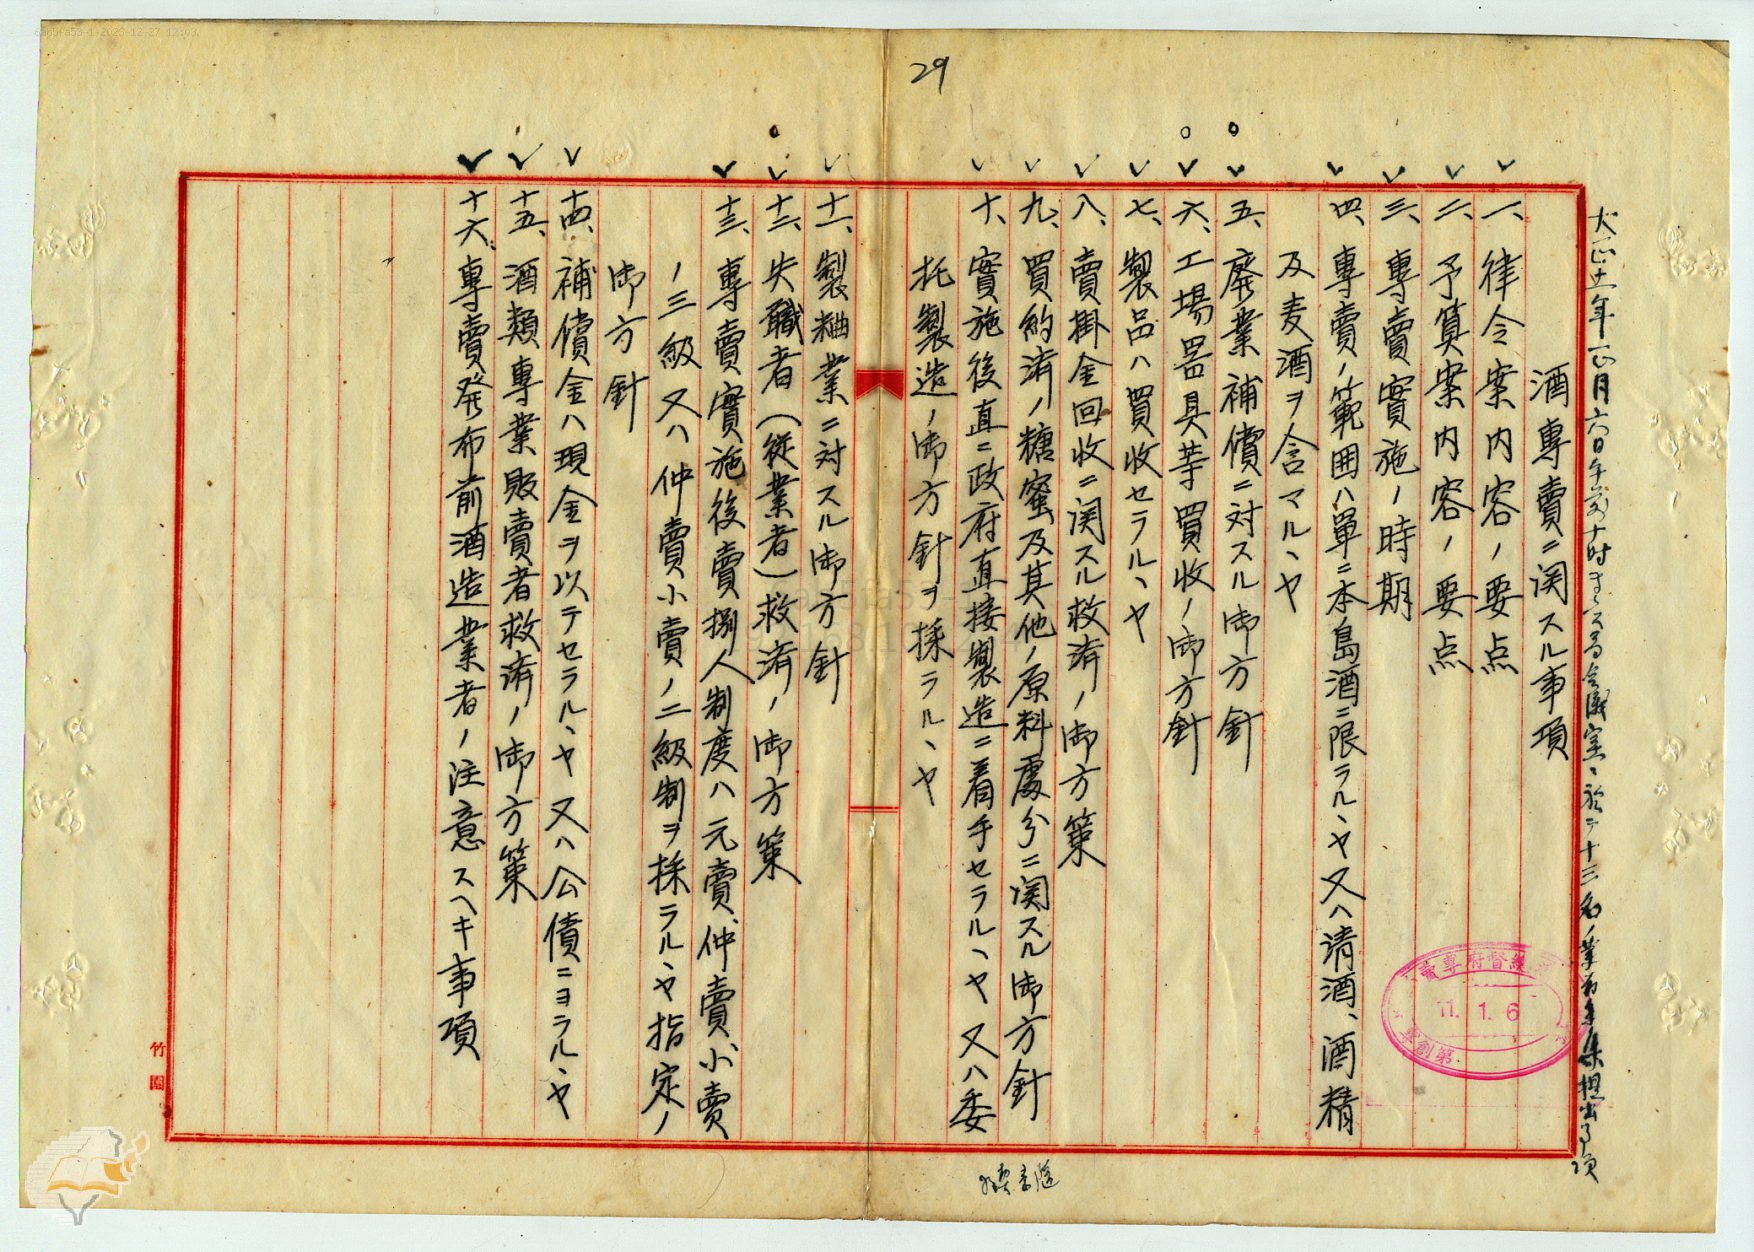 29
大正十一年一月六日午前十時
酒專賣ニ関スル事項
一、律令案内容ノ要点
二、予算案内容ノ要点
三、專賣實施ノ時期
四、專賣ノ範囲ハ單ニ本島酒ニ限ラルヽヤ又ハ清酒、酒精
及麦酒ヲ含マルヽヤ
五、廃業補償ニ対スル御方針
六、工場器具等買收ノ御方針
七、製品ハ買收セラルヽヤ
八、賣掛金回收ニ関スル救済ノ御方策
九、買約済ノ糖蜜及其他ノ原料處分ニ関スル御方針
十、實施後直ニ政府直接製造ニ着手セラルヽヤ又ハ委
托製造ノ御方針ヲ採ラルヽヤ
十一、製粬業ニ対スル御方針
十二、失職者(従業者)救済ノ御方策
十三、專賣實施後賣捌人制度ハ元賣、仲賣、小賣
ノ三級又ハ仲賣小賣ノ二級制ヲ採ラルヽヤ指定ノ
御方針
十四、補償金ハ現金ヲ以テセラルヽヤ又ハ公債ニヨラルヽヤ
十五、酒類專業販賣者救済ノ御方策
十六、專賣発布前酒造業者ノ注意スヘキ事項
11. 1. 6
竹園